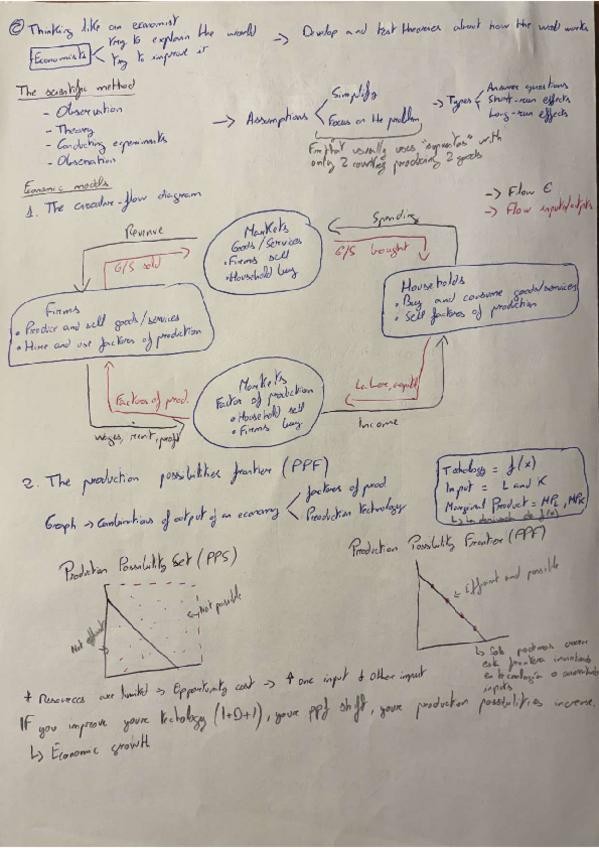 ② Thinking like an economist
Economists
Try to explain the world
Try to improve it
→ Develop and test theories about how the world works
The scientific method
- Observation
- Theory
- Conducting experiments
- Observation
→ Assumptions
Simplify
Focus on the problem
→ Types
Answer questions
Short-run effects
Long-run effects
usually uses "supuestos" with
only 2 countries producing 2 goods
Economic models
1. The circular-flow diagram
→ Flow €
→ Flow inputs/outputs
Revenue
G/S sold
Markets
Goods/Services
• Firms sell
• Household buy
Spending
G/S bought
Firms
• Produce and sell goods/services
• Hire and use factors of production
Households
• Buy and consume goods/services
• Sell factors of production
Factors of prod.
Wages, rent, profit
Markets
Factor of production
• Household sell
• Firms buy
Labor, capital
Income
2. The production possibilities frontier (PPF)
Graph → Combinations of output of an economy
factors of prod
Production technology
= f(x)
Input = L and K
Marginal Product = MPL, MPK
↳ la derivada de f(x)
Production Possibility Set (PPS)
Not efficient
Not possible
Production Possibility Frontier (PPF)
Efficient and possible
↳ Solo podemos
esta frontera
en tecnología o
inputs
* Resources are limited → Opportunity cost → ↑ one input ↓ other input
If you improve youre technology (I+D+I), youre ppf shift, youre production possibilities increase.
↳ Economic growth